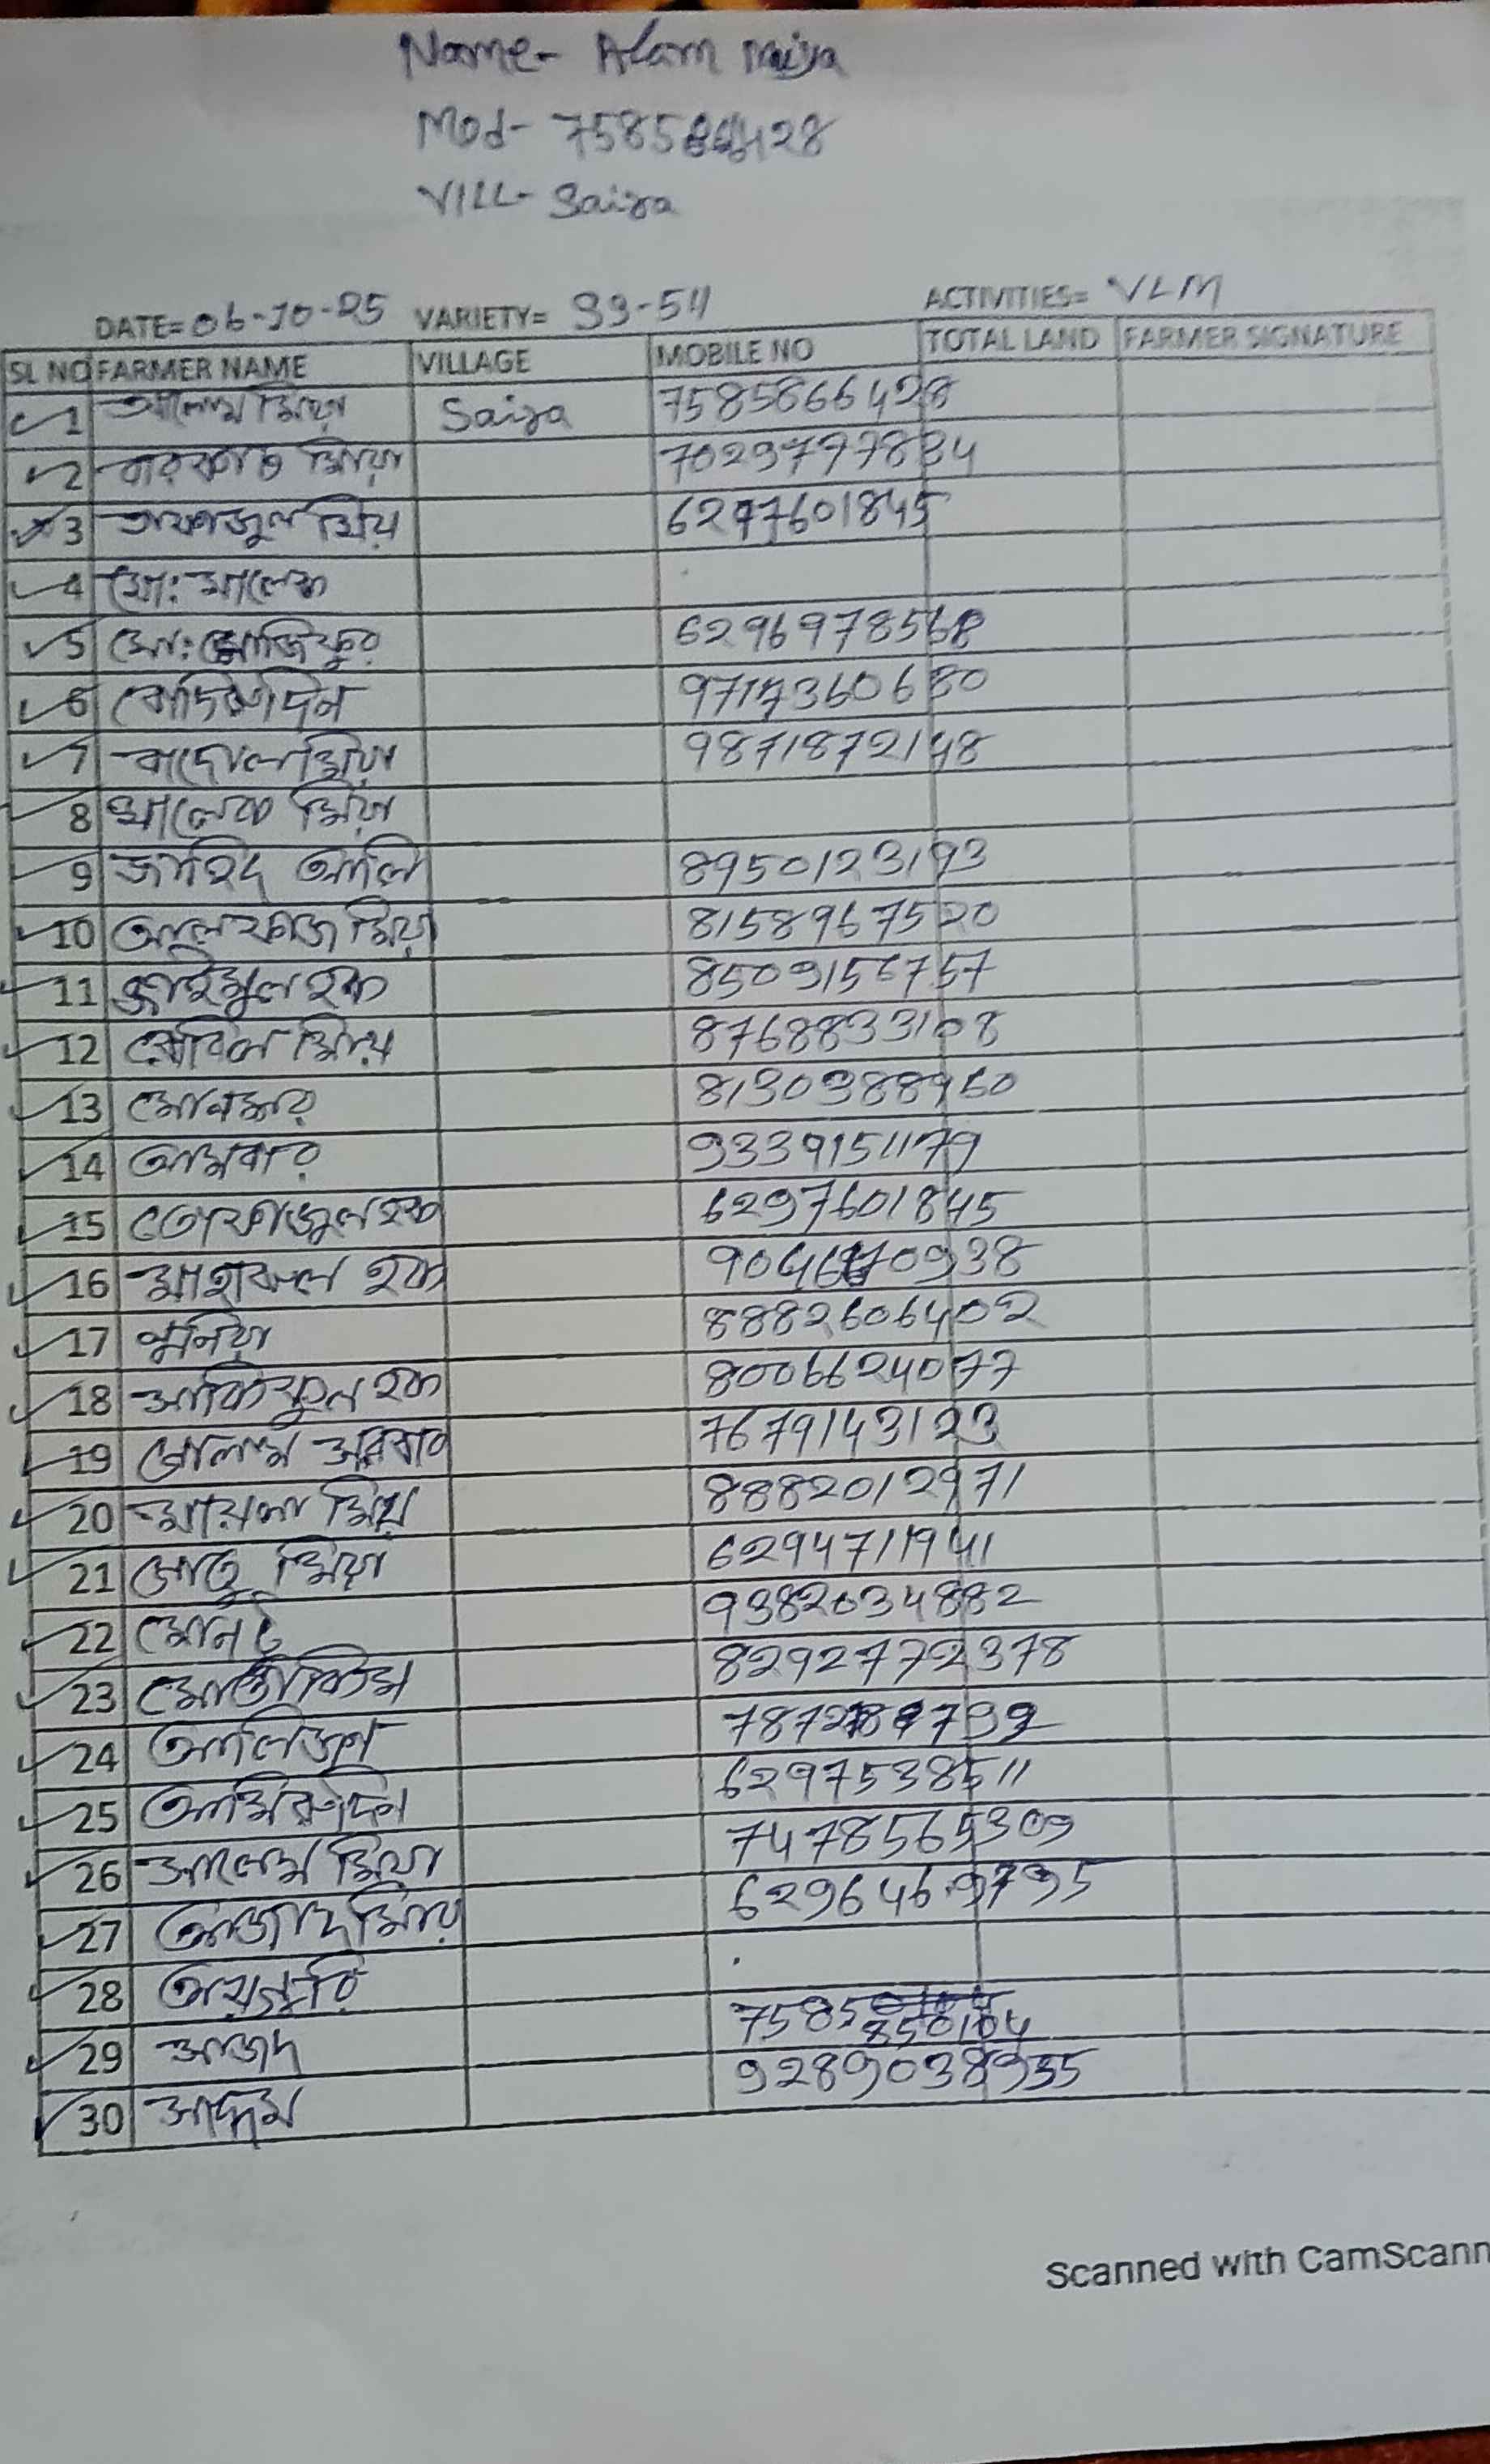 Name- Alam miya
Mod- 758586428
VILL- Saiya
DATE= 06-10-25 VARIETY= 99-54 ACTIVITIES= VLM
SL NO FARMER NAME VILLAGE MOBILE NO TOTAL LAND FARMER SIGNATURE
1 আলেম মিয়া Saiya 7585866428
2 বারফাত মিয়া 7029797834
3 তফাজুল মিয় 6297601845
4 মো: মালেক
5 মো: মোজিফুর 6296978568
6 বোদিরুদিন 9717360680
7 বাদোল মিয়া 9871872148
8 খালেক মিয়া
9 জাহিদ আলি 8950123193
10 আলফাজ মিয়া 8158967520
11 জাইমুল হক 8509156757
12 রোবিল মিয় 8768833108
13 মোনছার 8130388950
14 আমবার 9339151179
15 তোফাজুল হক 6297601845
16 মাহাবুল হক 0938
17 মুনিয়া 8882606402
18 আকিফুল হক 8006624077
19 গোলাম 7679143123
20 ময়না মিয় 8882012971
21 আতু মিয়া 6294711941
22 মোনটু 9382034882
23 মোস্তাকিম 8292772378
24 আলিজা 78727
25 আমিরুদ্দিন 6297538511
26 আলেম মিয়া 7478565309
27 আজাদ মিয় 6296469795
28
29 আজাদ 7585850104
30 আদ্দম 9289038935
Scanned with CamScann